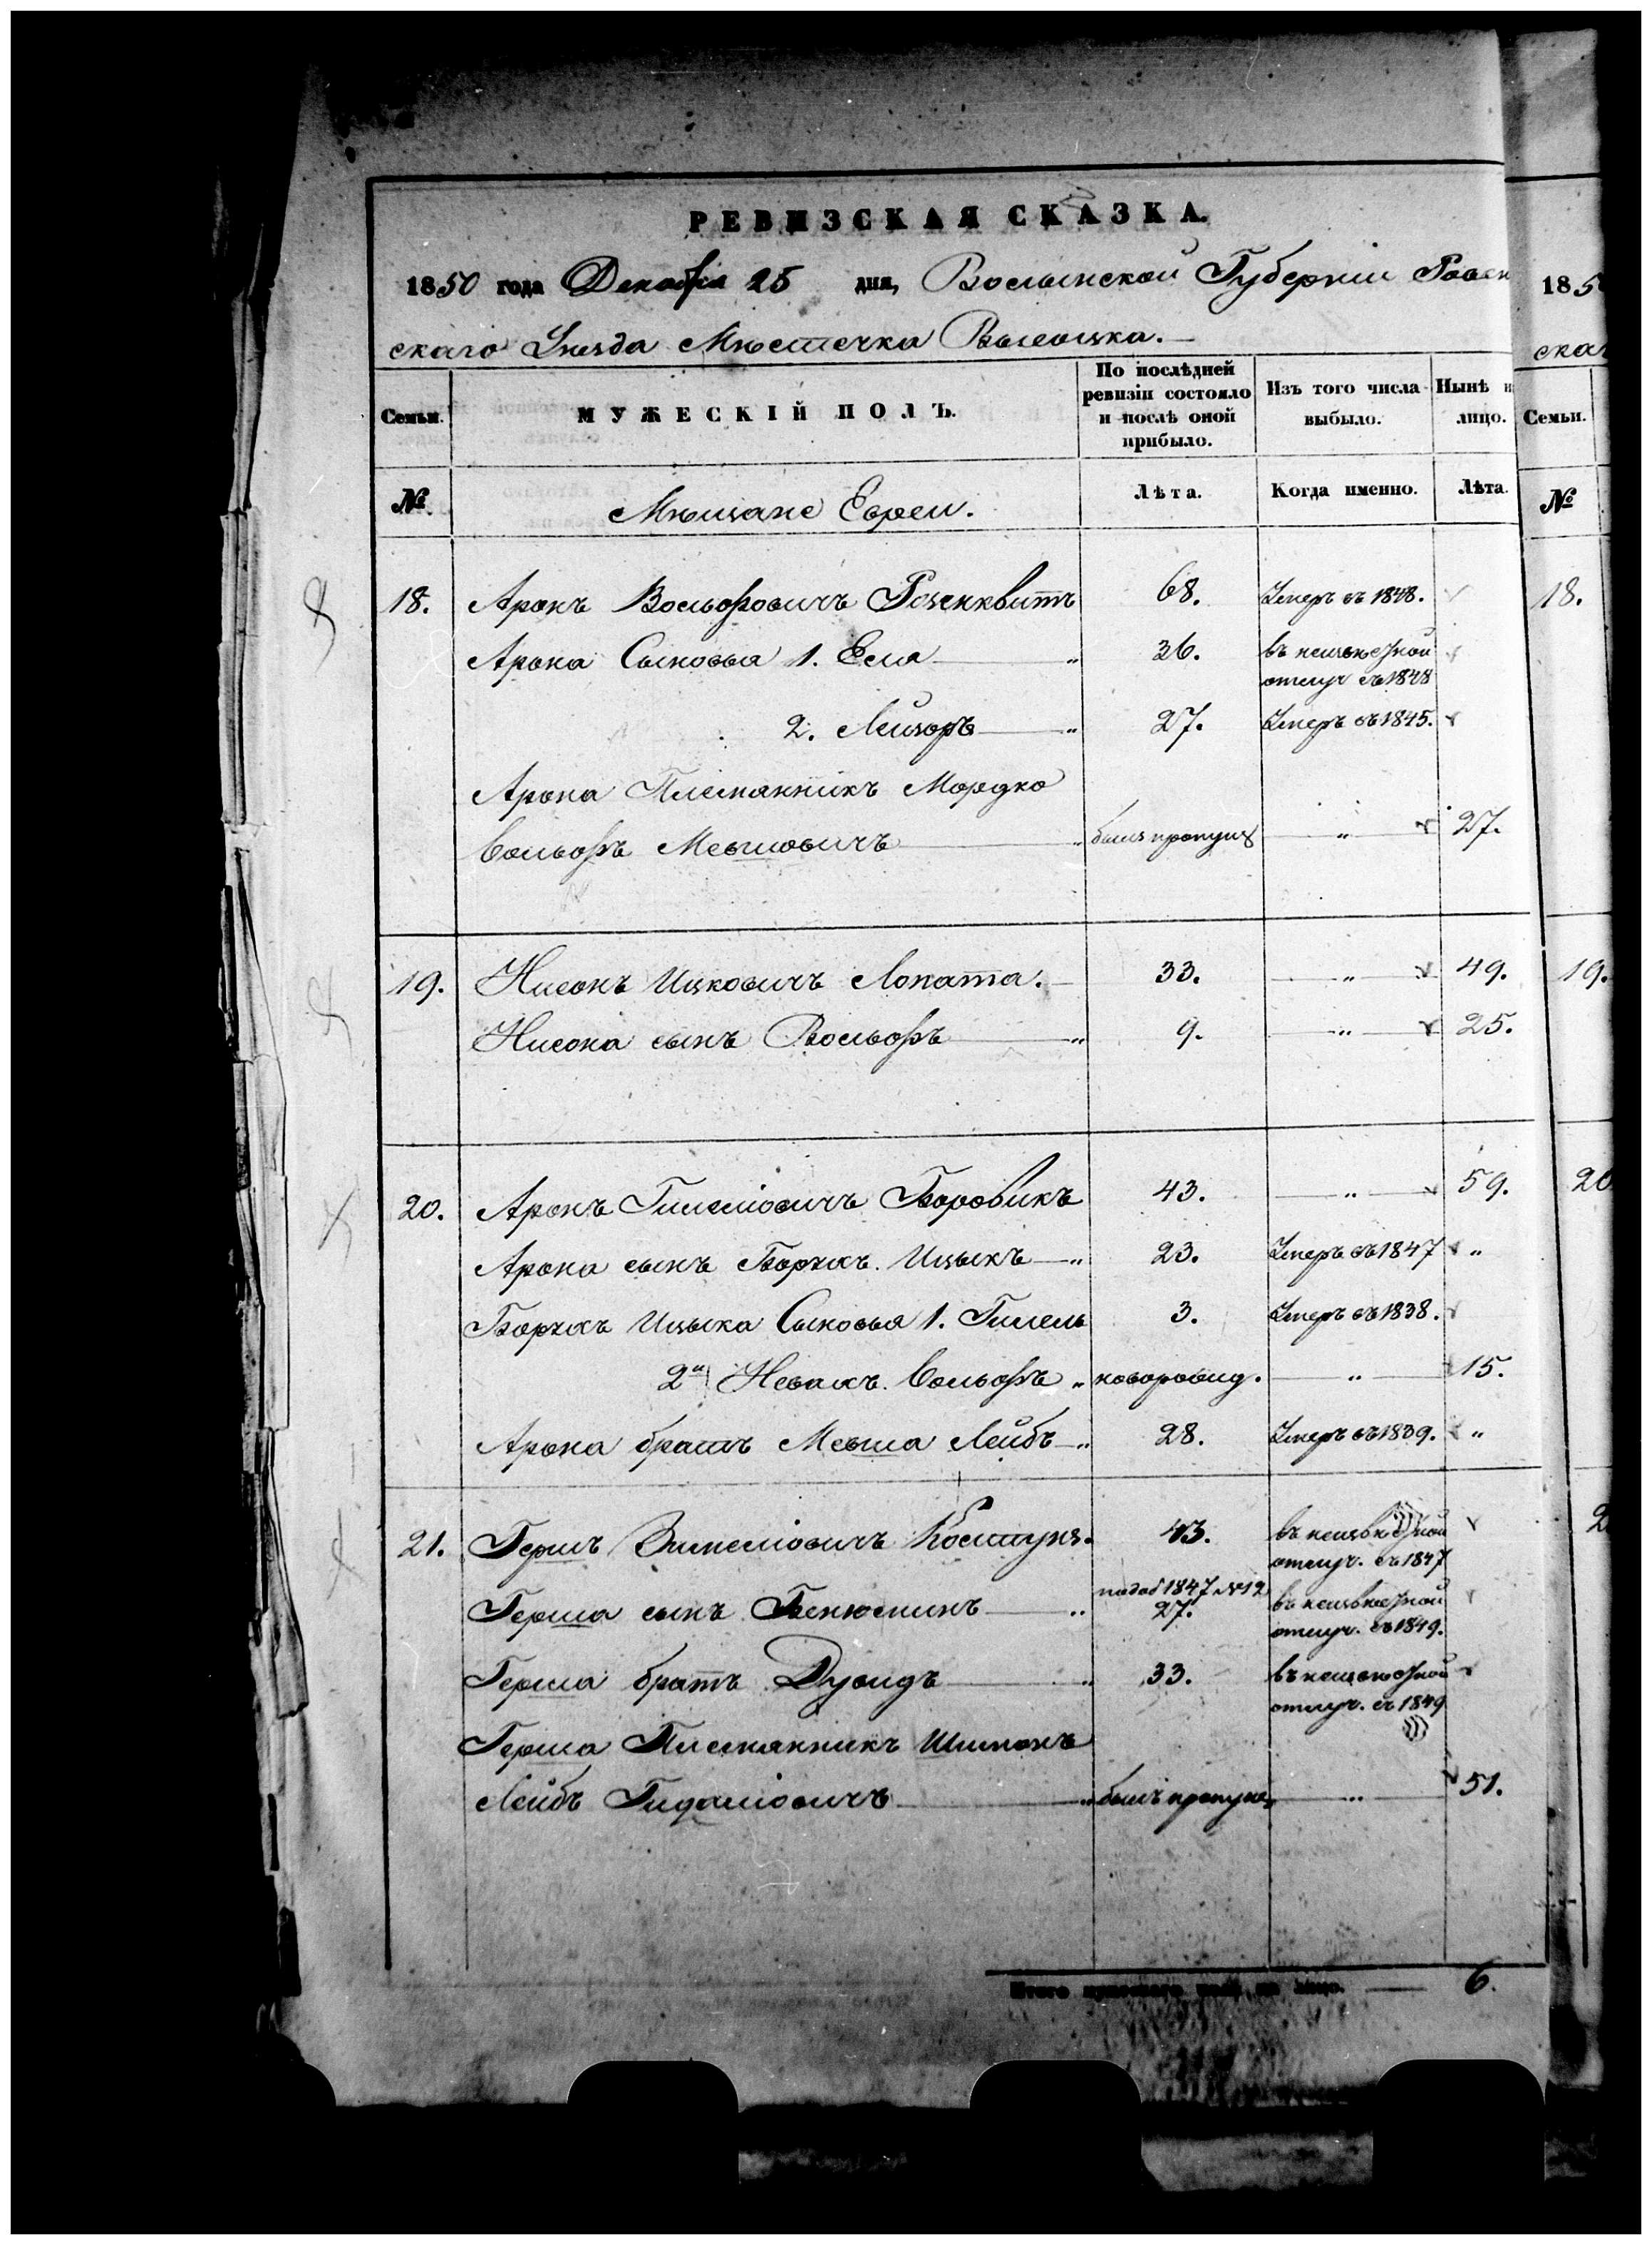 РЕВИЗСКАЯ СКАЗКА.
1850 года Декабря 25 дня, Волынской Губерніи Ровен
скаго Уѣзда Мѣстечка Высоцка.
Семьи.
МУЖЕСКІЙ ПОЛЪ.
По послѣдней ревизіи состояло и послѣ оной прибыло.
Изъ того числа выбыло.
Нынѣ н лицо.
№
Мѣщане Евреи.
Лѣта.
Когда именно.
Лѣта.
18. Аронъ Вольфовичъ Розенквитъ 68. Умеръ въ 1848.
Арона Сыновья 1. Еля „ 36. въ неизвѣстной отлуч съ 1848
2. Лейзоръ „ 27. Умеръ въ 1845.
Арона Племянникъ Мордко
Вольфъ Мевшовичъ „ былъ пропущ „ 27.
19. Нисонъ Ицковичъ Лопата. 33. „ 49.
Нисона сынъ Вольфъ „ 9. „ 25.
20. Аронъ Гилеліовичъ Боровикъ 43. „ 59.
Арона сынъ Борухъ Ицыкъ „ 23. Умеръ въ 1847 „
Борухъ Ицыка Сыновья 1. Гилель 3. Умеръ въ 1838.
2й Невахъ Вольфъ „ новорожд. „ 15.
Арона братъ Мевша Лейбъ „ 28. Умеръ въ 1839. „
21. Гершъ Зимеліовичъ 43. въ неизвѣстной отлуч. съ 1847
Герша сынъ Бенюминъ „ 1847 №12 27. въ неизвѣстной отлуч. съ 1849.
Герша братъ Дувидъ „ 33. въ неизвѣстной отлуч. съ 1849
Герша Племянникъ Шимонъ
Лейбъ Гидаліовичъ „ былъ пропущ „ 51.
Итого мужескаго пола на лицо. 6.
185
ска
Семьи.
№
18.
19.
20
2